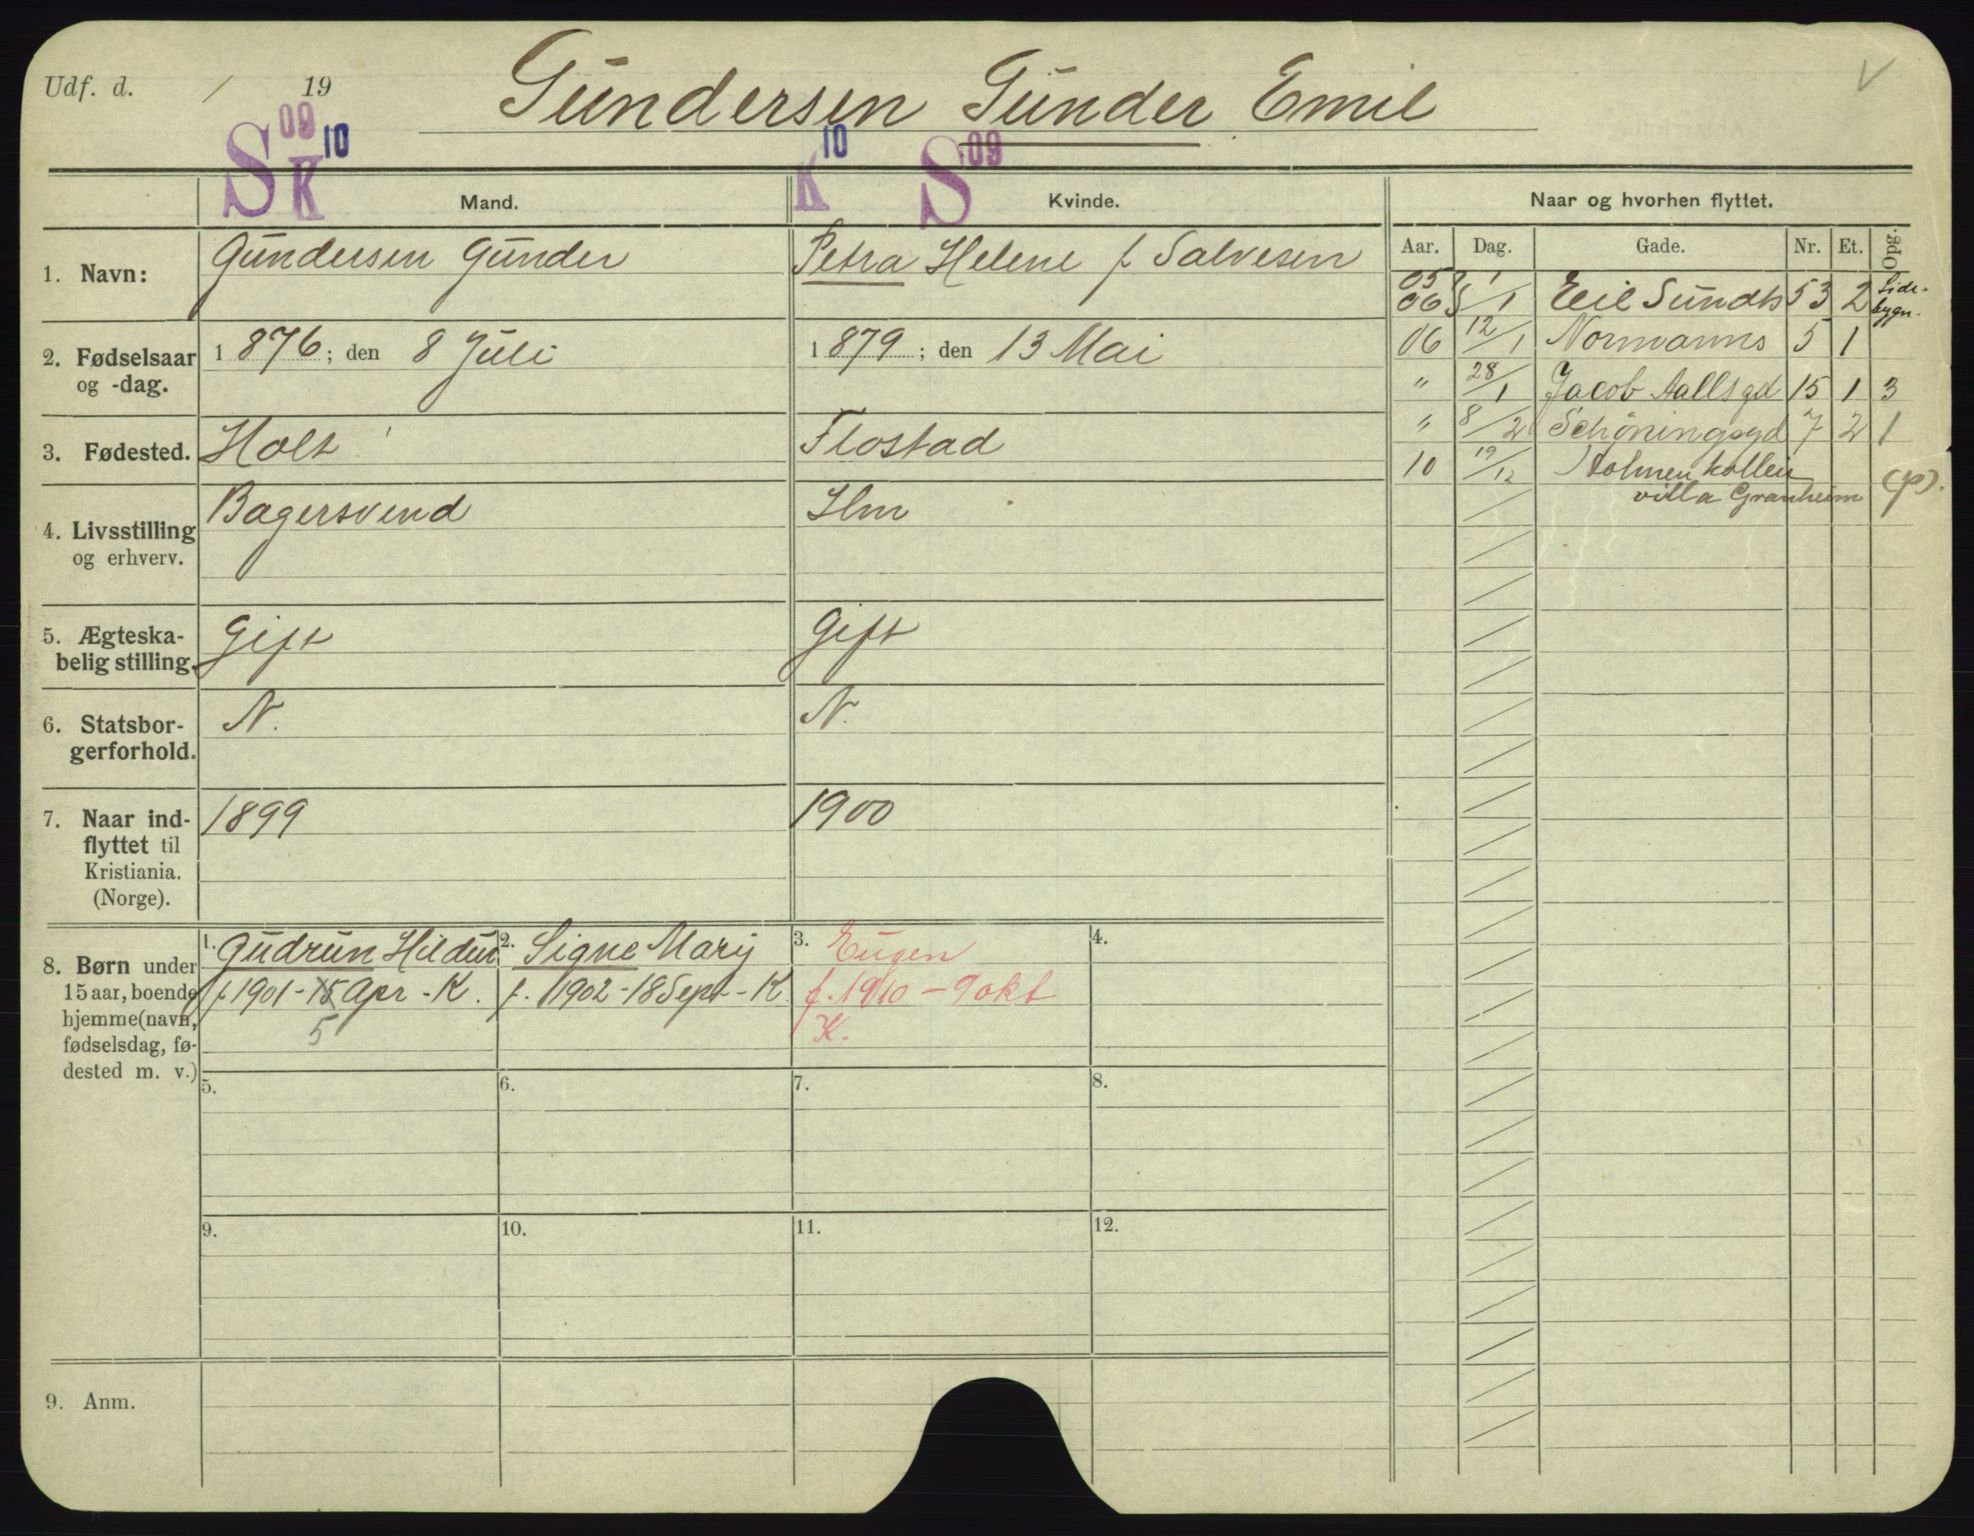 Udf. d. / 19
Gundersen Gunder Emil
V
S 09 K 10
K 10 S 09
Mand.
Kvinde.
Naar og hvorhen flyttet.
Aar. Dag. Gade. Nr. Et. Opg.
1. Navn:
Gundersen Gunder
Petra Helene f Salvesen
2. Fødselsaar
og -dag.
1876; den 8 Juli
1879; den 13 Mai
3. Fødested.
Holt
Flostad
4. Livsstilling
og erhverv.
Bagersvend
Hm
5. Ægteska-
belig stilling.
Gift
Gift
6. Statsbor-
gerforhold.
N.
N.
7. Naar ind-
flyttet til
Kristiania.
(Norge).
1899
1900
8. Børn under
15 aar, boende
hjemme (navn,
fødselsdag, fø-
dested m. v.)
1. Gudrun Hildur
f. 1901 - 15 Apr - K.
5
2. Signe Mary
f. 1902 - 18 Sept - K.
3. Eugen
f. 1910 - 9 okt
K.
4.
5.
6.
7.
8.
9.
10.
11.
12.
9. Anm.
05
06 1/1 Eeil Sundts 53 2 Side-
bygn.
06 12/1 Normanns 5 1
" 28/1 Jacob Aallsgd 15 1 3
" 8/2 Schøningsgd 7 2 1
10 19/12 Holmenkollen
villa Granheim (p).